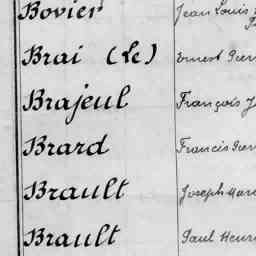 Bovier Jean Louis
Brai (Le) Ernest
Brajeul François J
Brard Francis
Brault Joseph
Brault Paul Henri